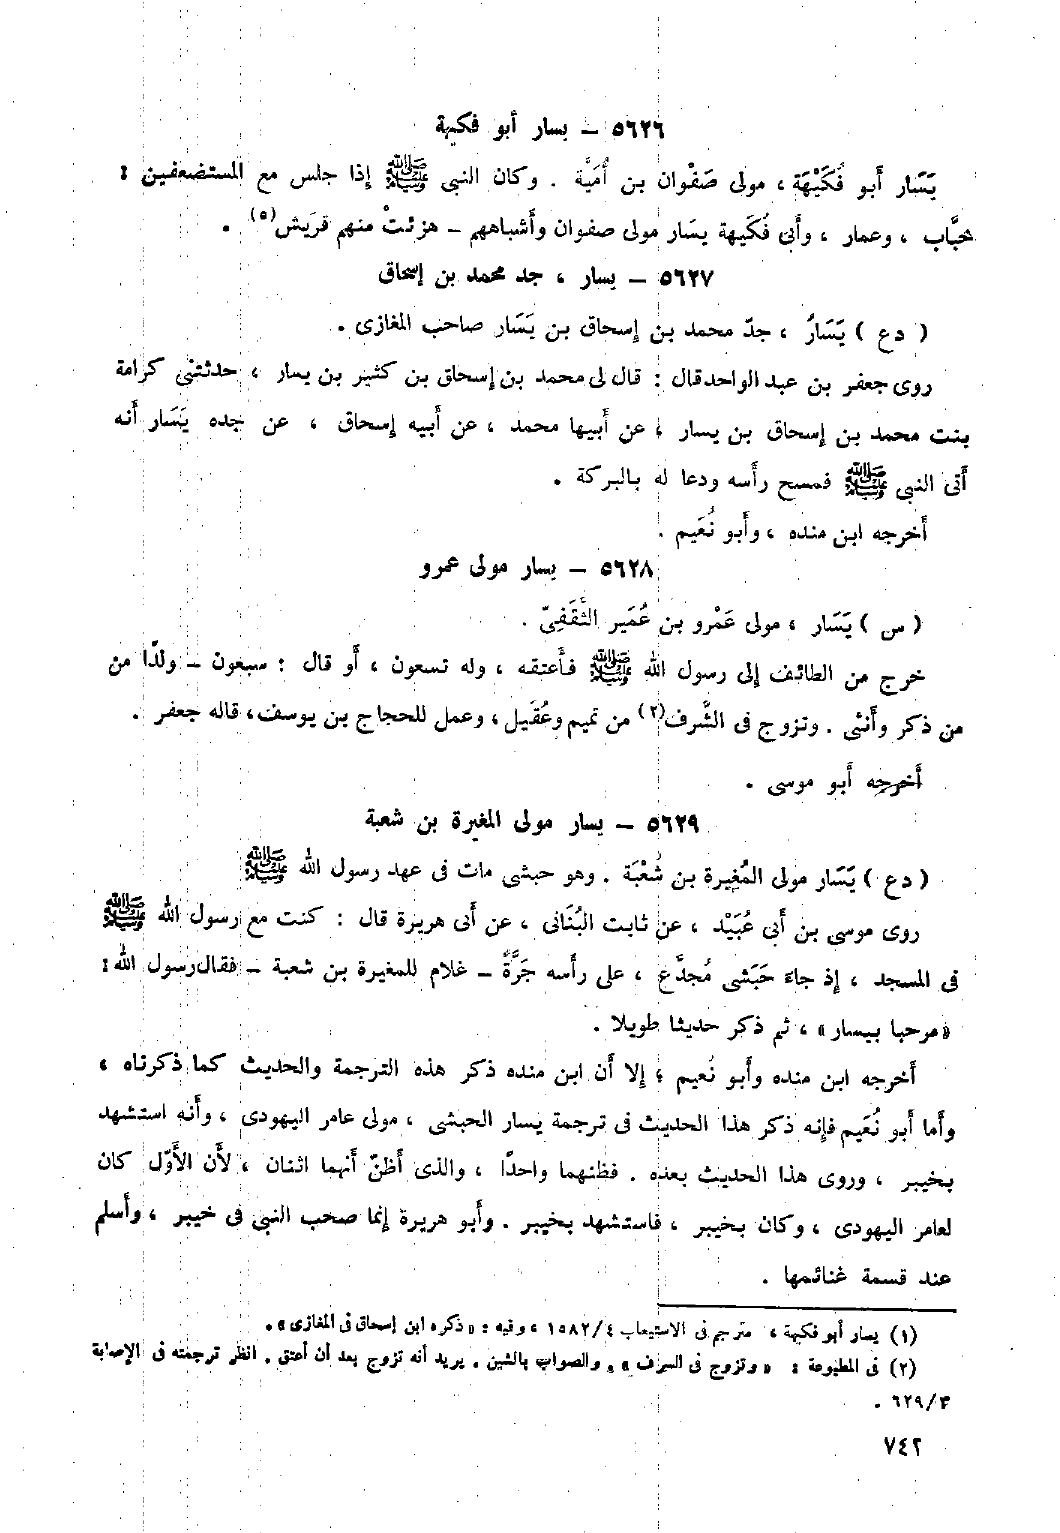 ٥٦٢٦ – يسار أبو فكيهة
يَسَار أبو فُكَيْهَة ، مولى صَفْوان بن أُمَيَّة . وكان النبى ﷺ إذا جلس مع المستضعفين :
خبَّاب ، وعمار ، وأبى فُكَيهة يسَار مولى صفوان وأشباههم – هزئتْ منهم قرَيش(٥) .
٥٦٢٧ – يسار ، جد محمد بن إسحاق
( دع ) يَسَارُ ، جدّ محمد بن إسحاق بن يَسَار صاحب المغازى .
روى جعفر بن عبد الواحد قال : قال لى محمد بن إسحاق بن كثير بن يسار ، حدثتنى كرامة
بنت محمد بن إسحاق بن يسار ، عن أبيها محمد ، عن أبيه إسحاق ، عن جده يَسَار أنه
أتى النبى ﷺ فمسح رأسه ودعا له بالبركة .
أخرجه ابن منده ، وأبو نُعَيم .
٥٦٢٨ – يسار مولى عمرو
( س ) يَسَار ، مولى عَمْرو بن عُمَير الثَّقَفِىّ .
خرج من الطائف إلى رسول الله ﷺ فأعتقه ، وله تسعون ، أو قال : سبعون – ولدًا من
من ذكر وأنثى . وتزوج فى الشَّرف(٢) من تميم وعُقَيل ، وعمل للحجاج بن يوسف ، قاله جعفر .
أخرجه أبو موسى .
٥٦٢٩ – يسار مولى المغيرة بن شعبة
( دع ) يَسَار مولى المُغِيرة بن شُعْبَة . وهو حبشى مات فى عهد رسول الله ﷺ
روى موسى بن أبى عُبَيْد ، عن ثابت البُنَانى ، عن أبى هريرة قال : كنت مع رسول الله ﷺ
فى المسجد ، إذ جاءَ حَبَشى مُجدَّع ، على رأسه جَرَّةٌ – غلام للمغيرة بن شعبة – فقال رسول الله :
«مرحبا بيسار» ، ثم ذكر حديثا طويلا .
أخرجه ابن منده وأبو نُعيم ، إلا أن ابن منده ذكر هذه الترجمة والحديث كما ذكرناه ،
وأما أبو نُعَيم فإنه ذكر هذا الحديث فى ترجمة يسار الحبشى ، مولى عامر اليهودى ، وأنه استشهد
بخيبر ، وروى هذا الحديث بعده . فظنهما واحدًا ، والذى أظنّ أنهما اثنان ، لأن الأوّل كان
لعامر اليهودى ، وكان بخيبر ، فاستشهد بخيبر . وأبو هريرة إنما صحب النبى فى خيبر ، وأسلم
عند قسمة غنائمها .
(١) يسار أبو فكيهة ، مترجم فى الاستيعاب ٤/١٥٨٢ ، وفيه : «ذكره ابن إسحاق فى المغازى» .
(٢) فى المطبوعة : «وتزوج فى السرف» . والصواب بالشين . يريد أنه تزوج بعد أن أعتق . انظر ترجمته فى الإصابة
٣/٦٢٩ .
٧٤٢